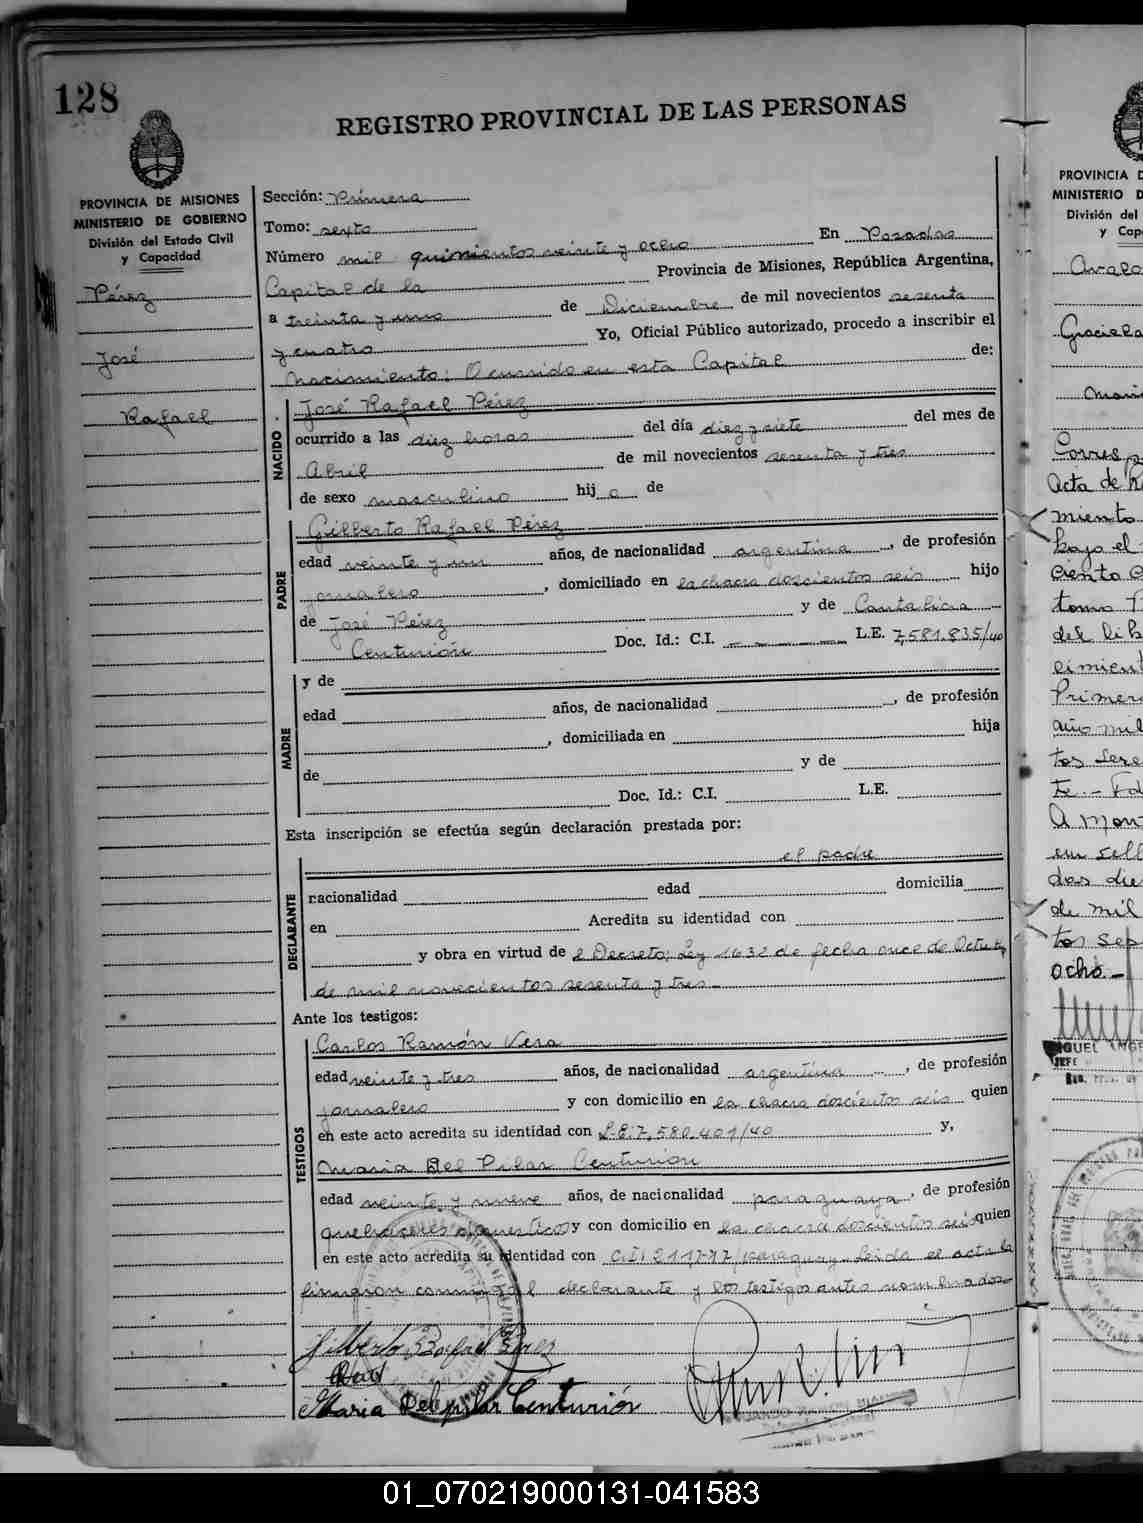 128
REGISTRO PROVINCIAL DE LAS PERSONAS
PROVINCIA DE MISIONES
MINISTERIO DE GOBIERNO
División del Estado Civil
y Capacidad
Pérez
José
Rafael
Sección: Primera
Tomo: sexto
Número mil quinientos veinte y ocho En Posadas
Capital de la Provincia de Misiones, República Argentina,
a treinta y uno de Diciembre de mil novecientos sesenta
y cuatro Yo, Oficial Público autorizado, procedo a inscribir el
Nacimiento: Ocurrido en esta Capital de:
NACIDO
José Rafael Pérez
ocurrido a las diez horas del día diez y siete del mes de
Abril de mil novecientos sesenta y tres
de sexo masculino hijo de
PADRE
Gilberto Rafael Pérez
edad veinte y un años, de nacionalidad argentina, de profesión
jornalero, domiciliado en la chacra doscientos seis hijo
de José Pérez y de Cantalicia
Centurión Doc. Id.: C.I. L.E. 7,581.835/40
MADRE
y de
edad años, de nacionalidad , de profesión
, domiciliada en hija
de y de
Doc. Id.: C.I. L.E.
Esta inscripción se efectúa según declaración prestada por:
DECLARANTE
el padre
nacionalidad edad domicilia
en Acredita su identidad con
y obra en virtud de l Decreto; Ley 1632 de fecha once de Octubre
de mil novecientos sesenta y tres.-
Ante los testigos:
TESTIGOS
Carlos Ramón Vera
edad veinte y tres años, de nacionalidad argentina, de profesión
jornalero y con domicilio en la chacra doscientos seis quien
en este acto acredita su identidad con L.E: 7,580.401/40 y,
Maria Del Pilar Centurion
edad veinte y nueve años, de nacionalidad paraguaya, de profesión
quehaceres domesticos y con domicilio en la chacra doscientos seis quien
en este acto acredita su identidad con C.I: paraguay. Leida el acta la
firmaron conmigo el declarante y los testigos antes nombrados.
Gilberto Rafael Perez
Maria Del pilar Centurión
PROVINCIA D
MINISTERIO D
División del
y Cap
Graciela
Acta de
miento
bajo el
ciento
tomo
del
Primer
año mil
tos
de mil
tos sep
ocho.-
JEFE
01_070219000131-041583